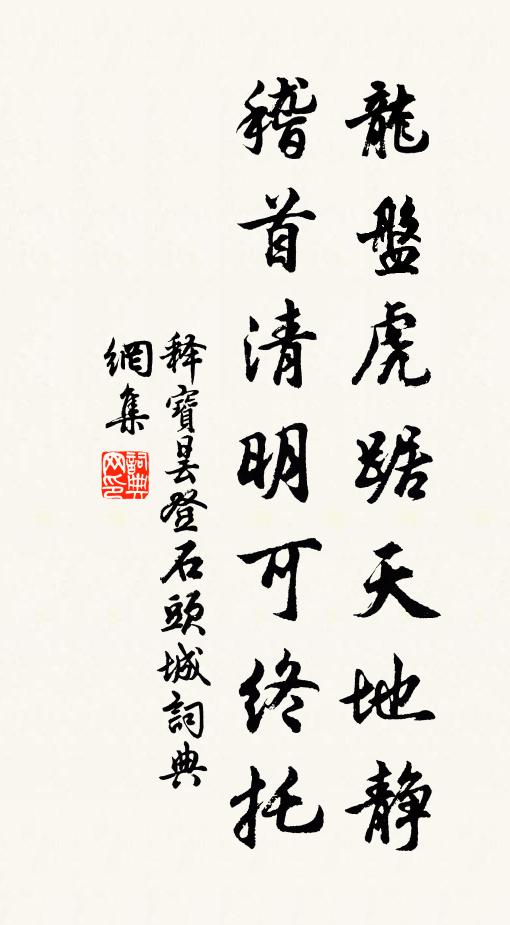 龍盤虎踞天地静
稽首清明可终托
释寶昙登石頭城詞典
網集
詞典網印